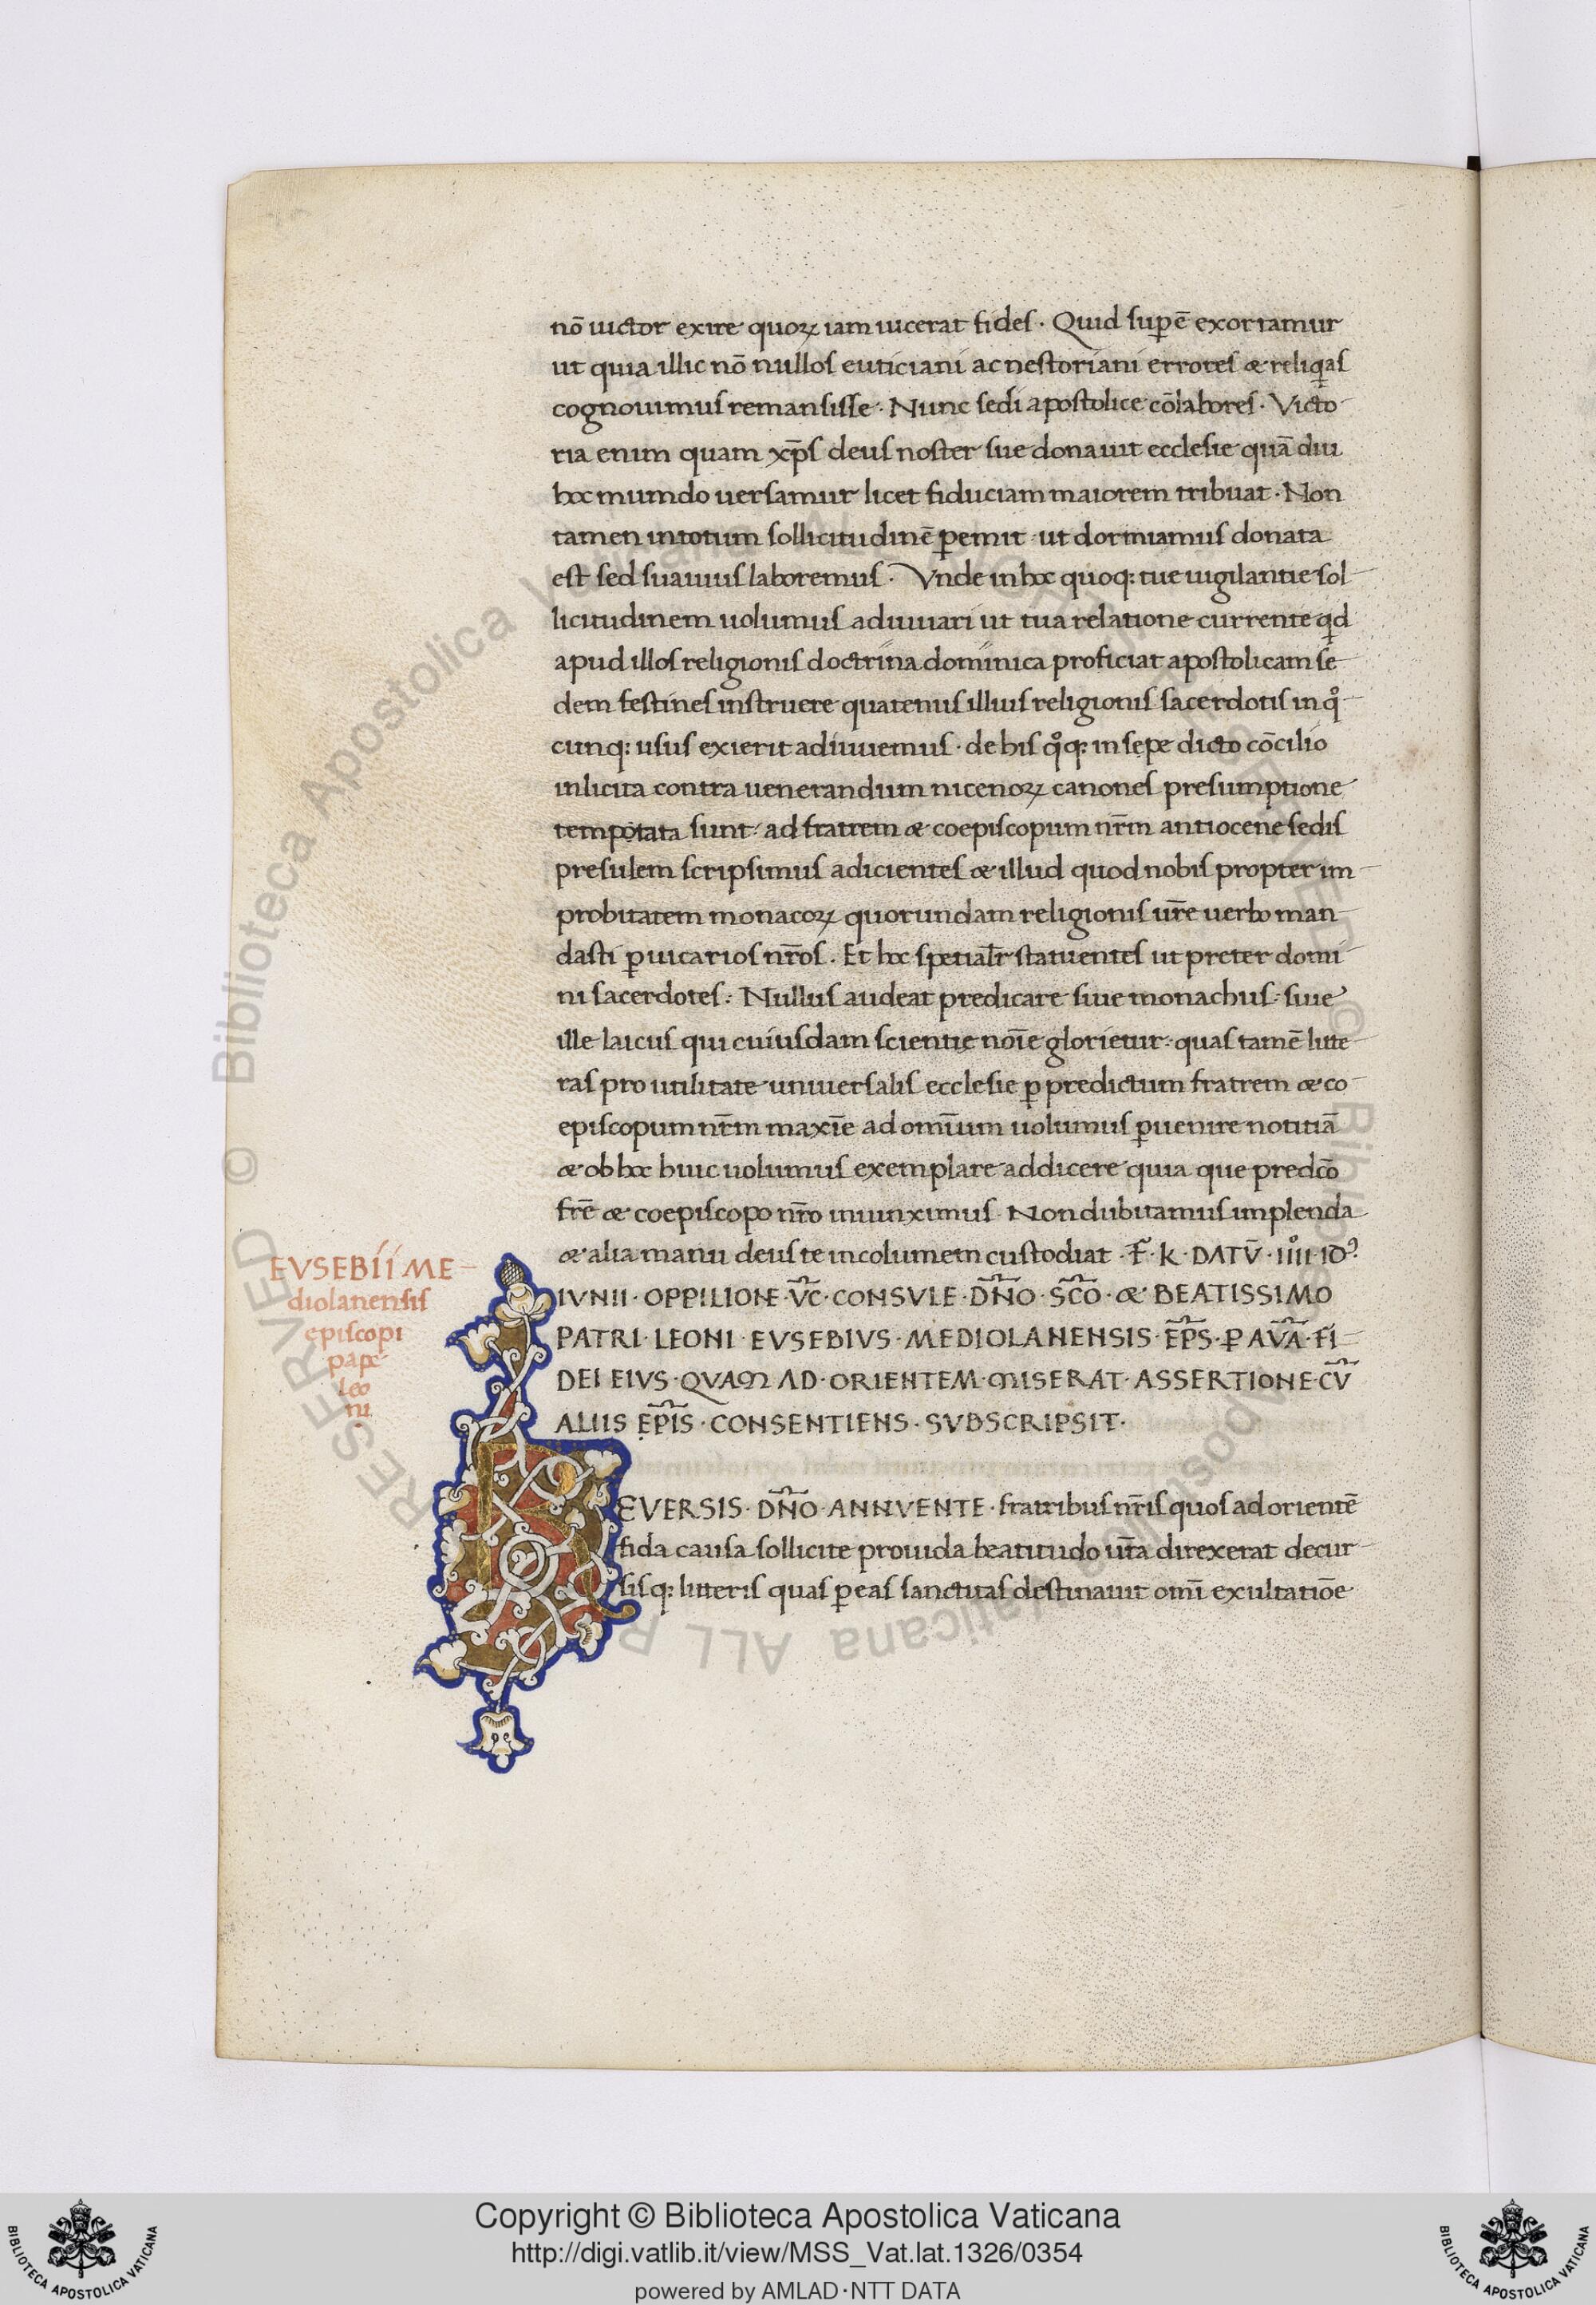 nō uictor exire quoꝝ iam uicerat fides · Quid supē exortamur
ut quia illic nō nullos euticiani ac nestoriani errores & reliqas
cognouimus remansisse · Nunc sedi apostolice cōlabores · Victo
ria enim quam xp̄s deus noster sue donauit ecclesie quā diu
hoc mumdo uersamur licet fiduciam maiorem tribuat · Non
tamen in totum sollicitudinē ꝑemit · ut dormiamus donata
est sed suauius laboremus · Vnde in hoc quoq: tue uigilantie sol
licitudinem uolumus adiuuari ut tua relatione currente qid
apud illos religionis doctrina dominica proficiat apostolicam se
dem festines instruere quatenus illius religionis sacerdotis in qͦ
cunq: usus exierit adiuuemus · de his qͦq: in sepe dicto cōcilio
inlicita contra uenerandum nicenoꝝ canones presumptione
temptata sunt: ad fratrem & coepiscopum nr̄m antiocene sedis
presulem scripsimus adicientes & illud quod nobis propter im
probitatem monacoꝝ quorundam religionis ur̄e uerbo man
dasti ꝑ uicarios nr̄os · Et hoc spetialr̄ statuentes ut preter domi
ni sacerdotes: Nullus audeat predicare siue monachus: siue
ille laicus qui cuiusdam scientię noīe glorietur: quas tamē litte
ras pro utilitate uniuersalis ecclesie ꝑ predictum fratrem & co
episcopum nr̄m maxīe ad omīum uolumus ꝑuenire notitiā
& ob hoc huic uolumus exemplare addicere quia que predc̄o
fr̄e & coepiscopo nr̄o iniunximus · Non dubitamus implenda
& alia manu deus te incolumem custodiat · F̄ · K · DATV̄ · IIIIͦ · IDꝰ
IVNII · OPPILIONE · V̄C · CONSVLE · DN̄O · SC̄O · & BEATISSIMO
PATRI · LEONI · EVSEBIVS · MEDIOLANENSIS · EP̄S · P AV̄A · FI
DEI EIVS · QVAM AD · ORIENTEM · MISERAT · ASSERTIONE · CV̄
ALIIS EP̄IS · CONSENTIENS · SVBSCRIPSIT ·
EVSEBII ME
diolanensis
episcopi
pape
leo
ni
REVERSIS · DN̄O · ANNVENTE · fratribus nr̄is quos ad orientē
fida causa sollicite prouida beatitudo ur̄a direxerat decur
sisq: litteris quas ꝑ eas sanctitas destinauit omī exultatiōe
© Biblioteca Apostolica Vaticana ALL RIGHTS RESERVED
Copyright © Biblioteca Apostolica Vaticana
http://digi.vatlib.it/view/MSS_Vat.lat.1326/0354
powered by AMLAD·NTT DATA
BIBLIOTECA APOSTOLICA VATICANA
BIBLIOTECA APOSTOLICA VATICANA